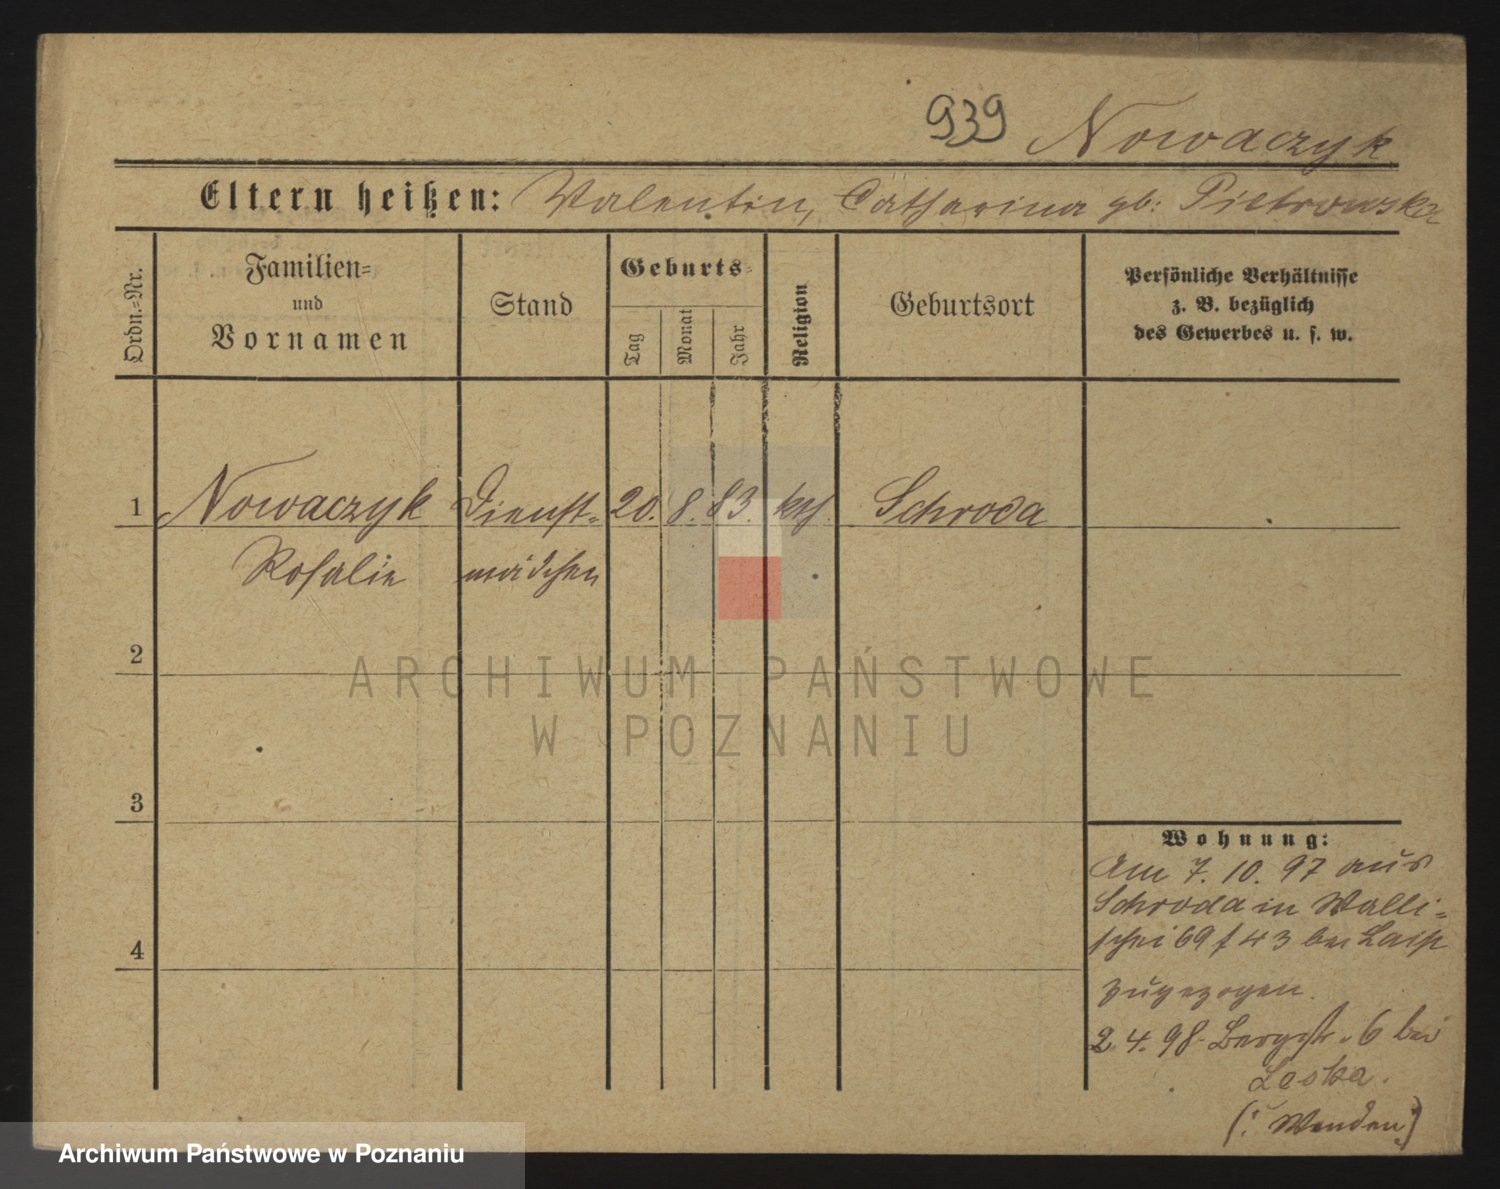 939 Nowaczyk
Eltern heißen: Valentin, Catharina gb: Pietrowska
Ordn.-Nr.
Familien-
und
Vornamen
Stand
Geburts-
Tag
Monat
Jahr
Religion
Geburtsort
Persönliche Verhältnisse
z. B. bezüglich
des Gewerbes u. s. w.
1 Nowaczyk Dienst- 20. 8. 83. kth. Schroda
Rosalie mädchen
2
ARCHIWUM PAŃSTWOWE
W POZNANIU
3
Wohnung:
Am 7. 10. 97 aus
Schroda in Walli-
schei 69 f 43 bei
4
zugezogen.
2. 4. 98. Bergstr. 6 bei
Leska.
(: Wenden :)
Archiwum Państwowe w Poznaniu